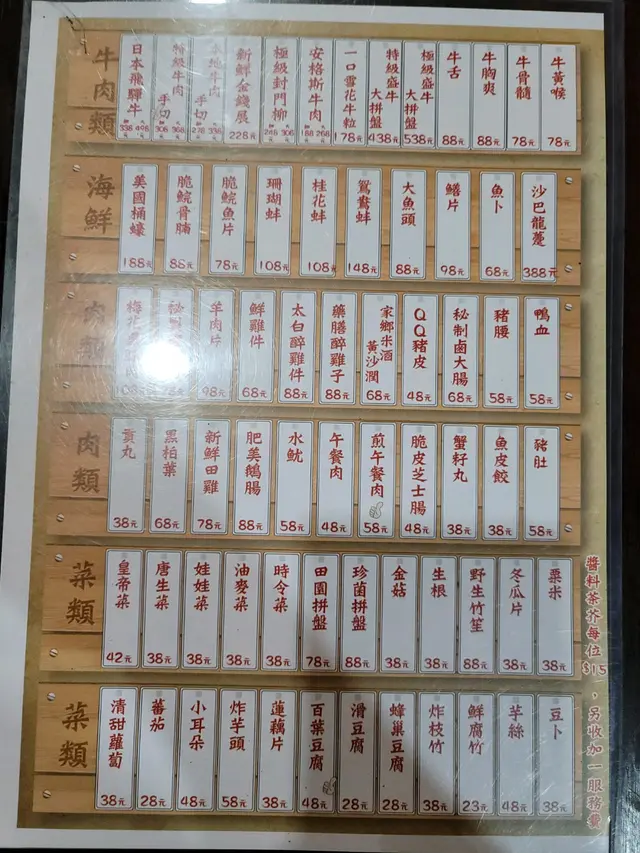 牛肉類
日本飛驒牛 338 498
特級牛肉 手切 306 368
牛肉 手切 278 338
新鮮金錢展 228元
極級封門柳 306
安格斯牛肉 188 268
一口雪花牛粒 178元
特級盛牛大拼盤 438元
極級盛牛大拼盤 538元
牛舌 88元
牛胸爽 88元
牛骨髓 78元
牛黃喉 78元
海鮮
美國桶蠔 188元
脆鯇骨腩 88元
脆鯇魚片 78元
珊瑚蚌 108元
桂花蚌 108元
鴛鴦蚌 148元
大魚頭 88元
鱔片 98元
魚卜 68元
沙巴龍躉 388元
肉類
梅花
羊肉片 98元
鮮雞件 68元
太白醉雞件 88元
藥膳醉雞子 88元
家鄉米酒黃沙潤 68元
QQ豬皮 48元
秘制鹵大腸 68元
豬腰 58元
鴨血 58元
肉類
貢丸 38元
黑柏葉 68元
新鮮田雞 78元
肥美鵝腸 88元
水魷 58元
午餐肉 48元
煎午餐肉 58元
脆皮芝士腸 48元
蟹籽丸 38元
魚皮餃 38元
豬肚 58元
菜類
皇帝菜 42元
唐生菜 38元
娃娃菜 38元
油麥菜 38元
時令菜 38元
田園拼盤 78元
珍菌拼盤 88元
金菇 38元
生根 38元
野生竹笙 88元
冬瓜片 38元
粟米 38元
菜類
清甜蘿蔔 38元
蕃茄 28元
小耳朵 48元
炸芋頭 58元
蓮藕片 38元
百葉豆腐 48元
滑豆腐 28元
蜂巢豆腐 28元
炸枝竹 38元
鮮腐竹 23元
芋絲 48元
豆卜 38元
醬料茶芥每位$15、另收加一服務費